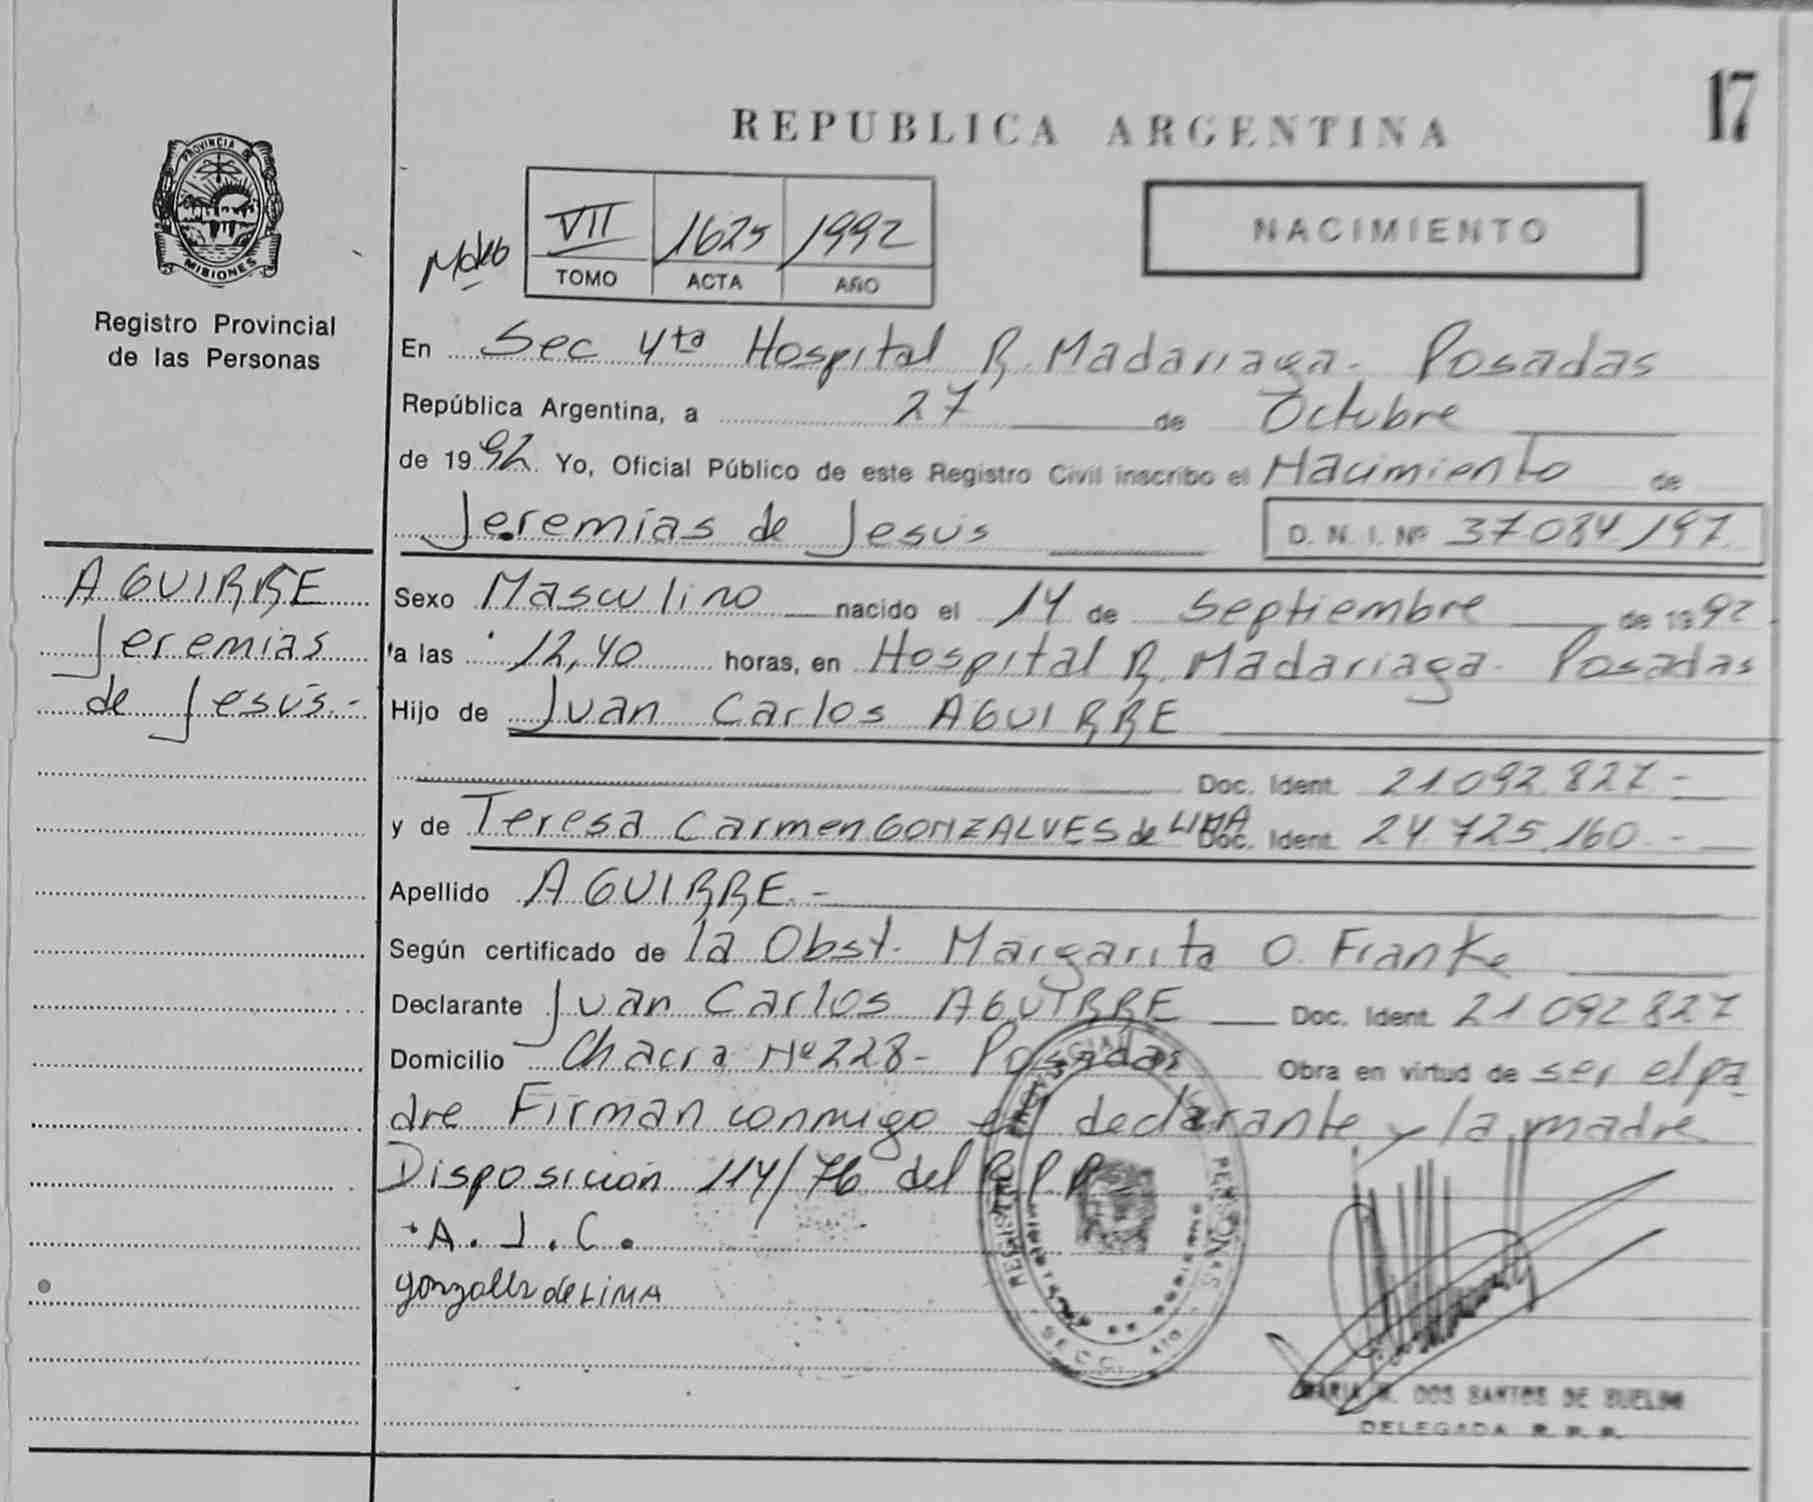 17
REPUBLICA ARGENTINA
PROVINCIA DE
MISIONES
Registro Provincial
de las Personas
VII 1625 1992
TOMO ACTA AÑO
NACIMIENTO
En Sec 4ta Hospital R. Madariaga - Posadas
República Argentina, a 27 de Octubre
de 1992 Yo, Oficial Público de este Registro Civil inscribo el Nacimiento de
Jeremias de Jesús D. N. I. Nº 37.084.197
AGUIRRE
Jeremias
de Jesús.-
Sexo Masculino nacido el 14 de Septiembre de 1992
a las 12,40 horas, en Hospital R. Madariaga - Posadas
Hijo de Juan Carlos AGUIRRE
Doc. Ident. 21.092.827 -
y de Teresa Carmen GONZALVES de LIMA Doc. Ident. 24.725.160 -
Apellido AGUIRRE.-
Según certificado de la Obst. Margarita O. Franke
Declarante Juan Carlos AGUIRRE Doc. Ident. 21.092.827
Domicilio Chacra Nº 228 - Posadas Obra en virtud de ser el pa
dre Firman conmigo el declarante y la madre
Disposición 114/76 del R.P.P.
A. J. C.
de LIMA
REGISTRO PROVINCIAL PERSONAS
SECC. 4TA
DOS SANTOS DE
DELEGADA R. P. P.